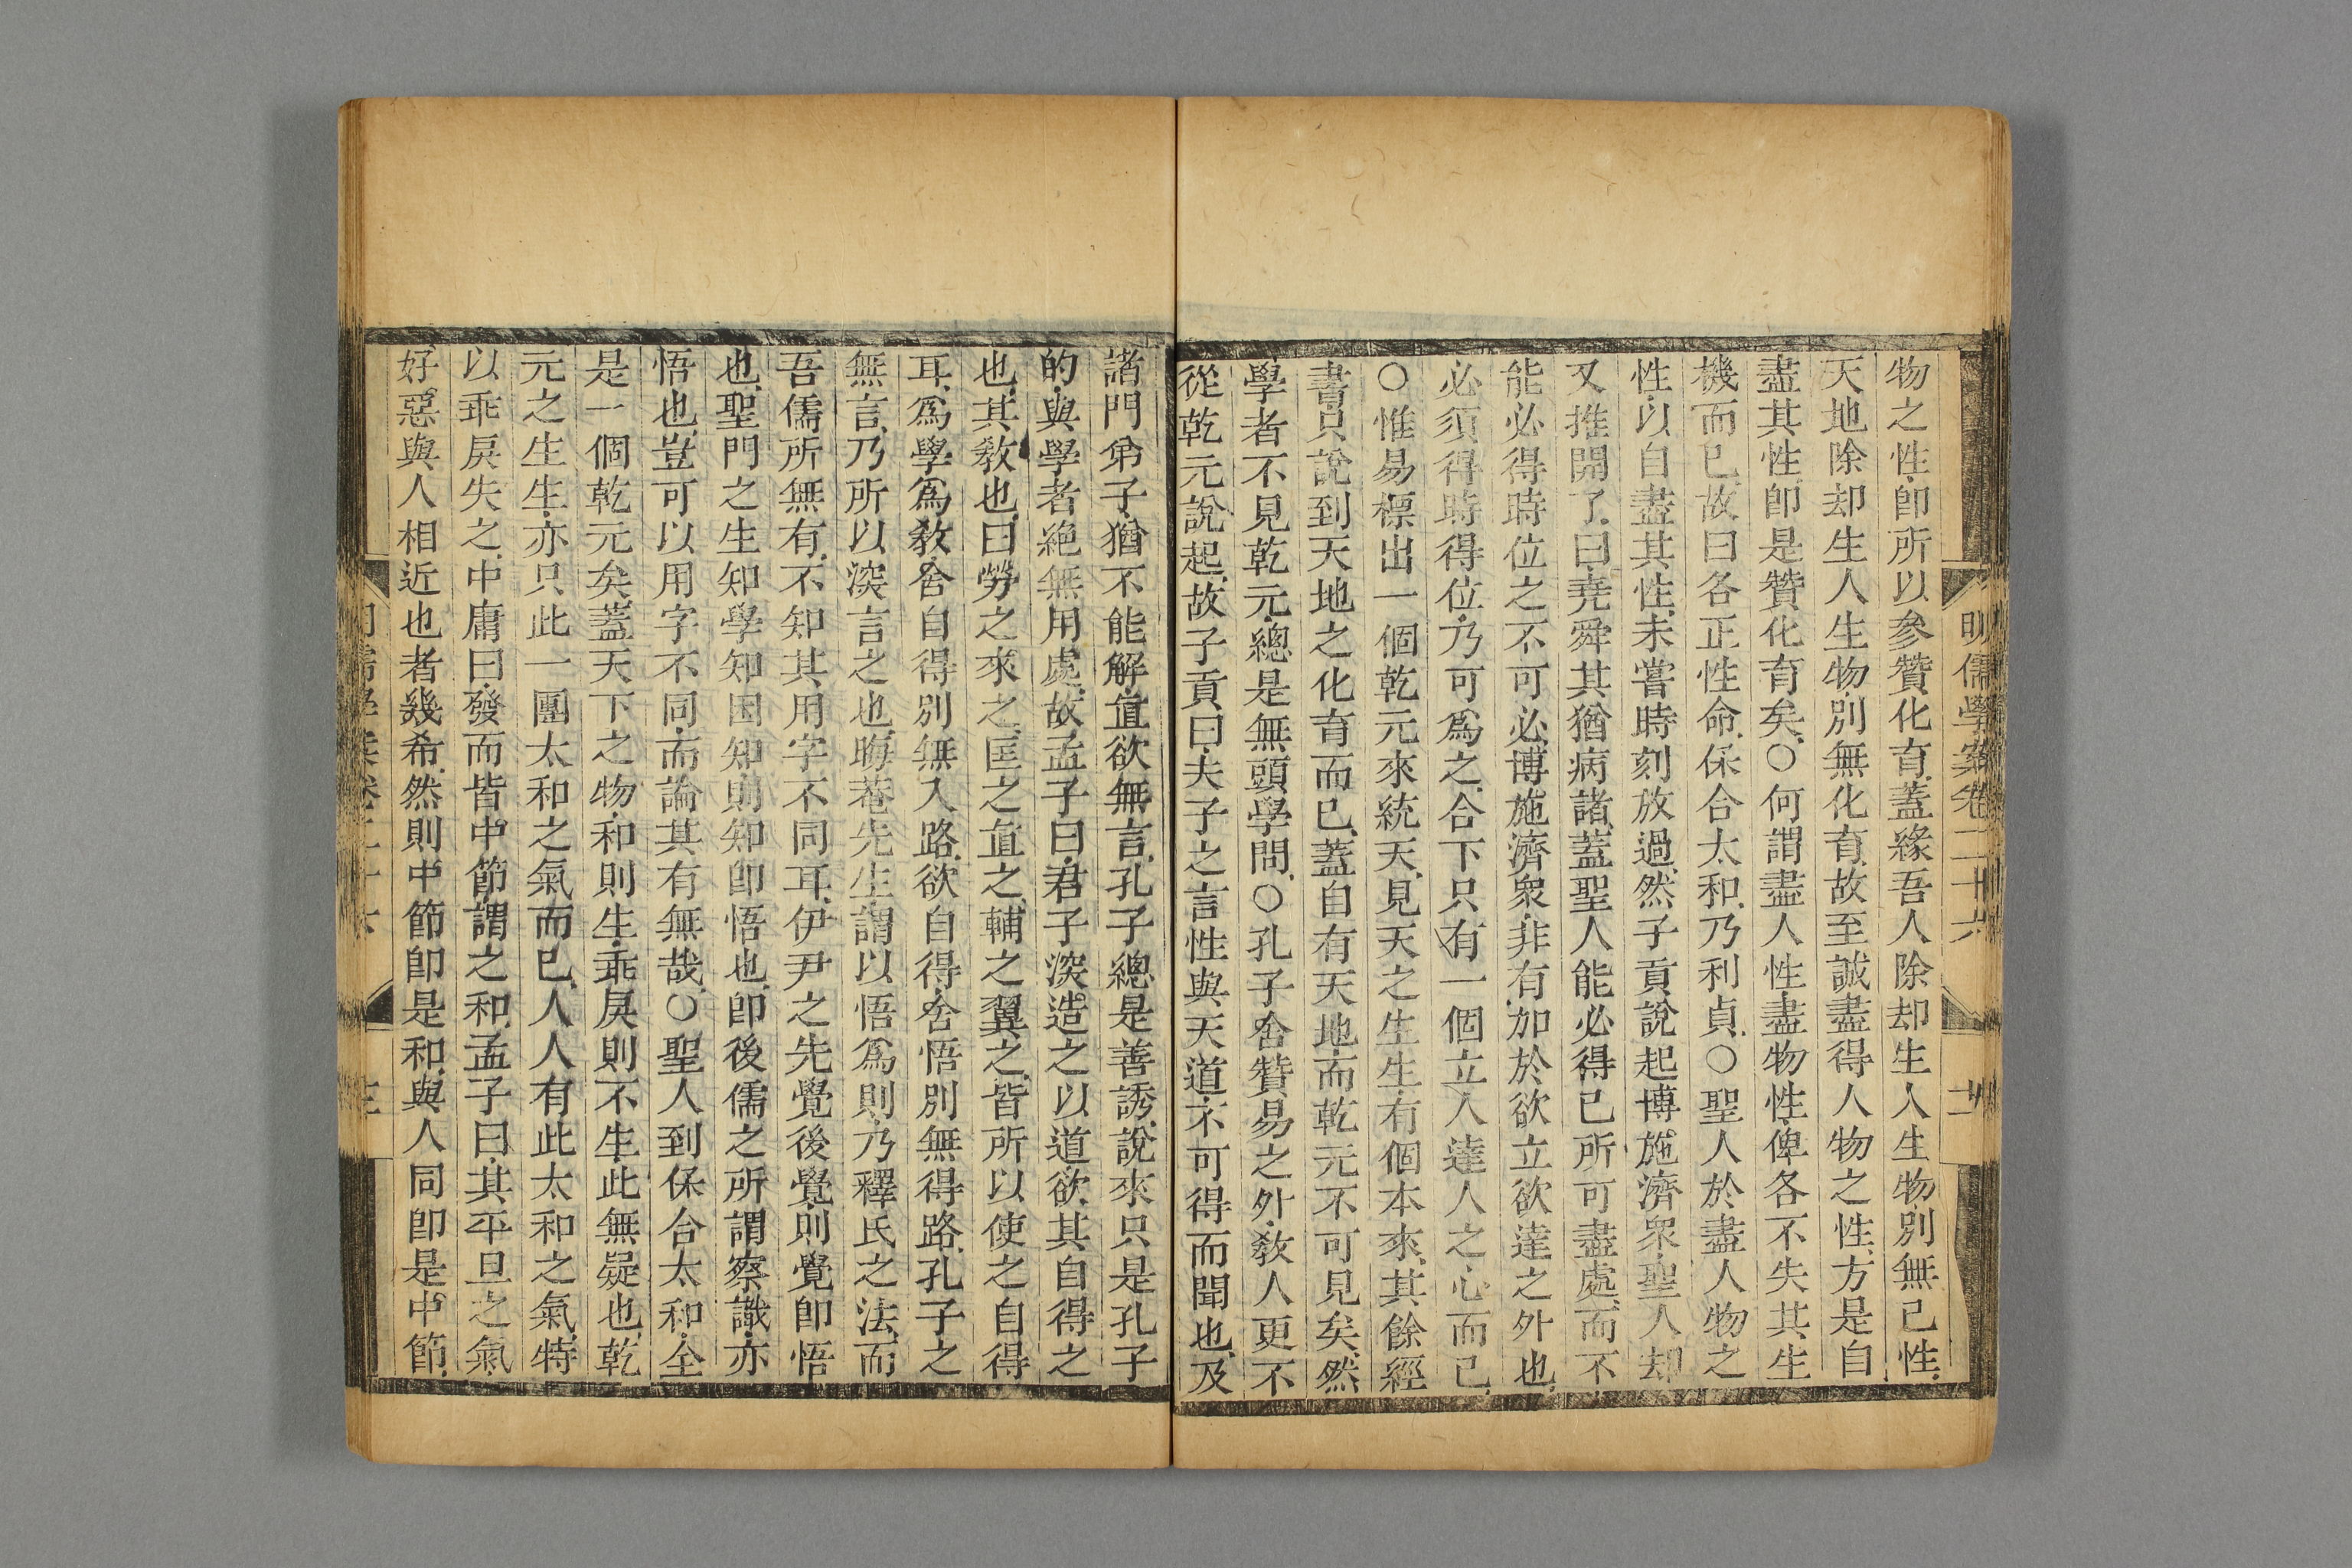 明儒學案卷二十六
物之性卽所以參贊化育蓋緣吾人除却生人生物別無己性
天地除却生人生物別無化育故至誠盡得人物之性方是自
盡其性卽是贊化育矣○何謂盡人性盡物性俾各不失其生
機而已故曰各正性命保合太和乃利貞○聖人於盡人物之
性以自盡其性未嘗時刻放過然子貢說起博施濟衆聖人却
又推開了曰堯舜其猶病諸蓋聖人能必得已所可盡處而不
能必得時位之不可必博施濟衆非有加於欲立欲達之外也
必須得時得位乃可爲之合下只有一個立人達人之心而已
○惟易標出一個乾元來統天見天之生生有個本來其餘經
書只說到天地之化育而已蓋自有天地而乾元不可見矣然
學者不見乾元總是無頭學問○孔子舍贊易之外敎人更不
從乾元說起故子貢曰夫子之言性與天道不可得而聞也及
諸門弟子猶不能解直欲無言孔子總是善誘說來只是孔子
的與學者絕無用處故孟子曰君子深造之以道欲其自得之
也其敎也曰勞之來之匡之直之輔之翼之皆所以使之自得
耳爲學爲敎舍自得別無入路欲自得舍悟別無得路孔子之
無言乃所以深言之也晦菴先生謂以悟爲則乃釋氏之法而
吾儒所無有不知其用字不同耳伊尹之先覺後覺則覺卽悟
也聖門之生知學知困知則知卽悟也卽後儒之所謂察識亦
悟也豈可以用字不同而論其有無哉○聖人到保合太和全
是一個乾元矣蓋天下之物和則生乖戾則不生此無疑也乾
元之生生亦只此一團太和之氣而已人人有此太和之氣特
以乖戾失之中庸曰發而皆中節謂之和孟子曰其平旦之氣
好惡與人相近也者幾希然則中節卽是和與人同卽是中節